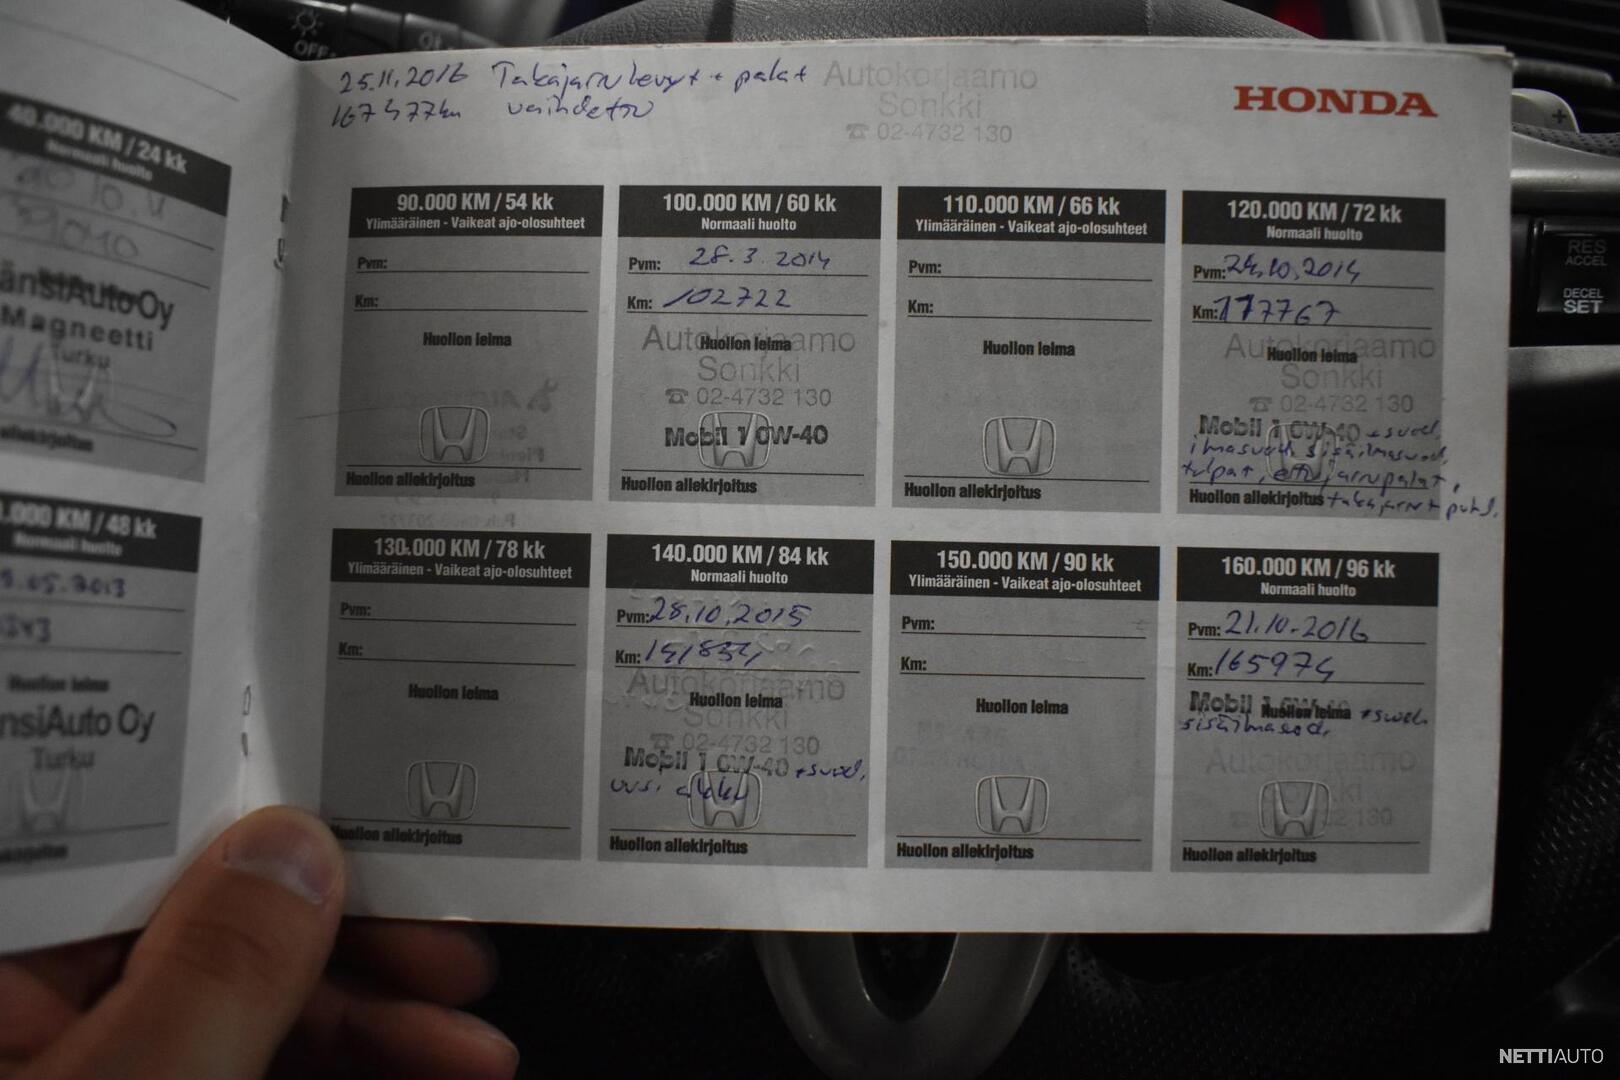 OFF
25.11.2016 Takajarrulevyt + palat
167477km vaihdettu
Autokorjaamo
Sonkki
☎ 02-4732 130
HONDA
40.000 KM / 24 kk
Normaali huolto
39010
änsiAuto Oy
Magneetti
Turku
allekirjoitus
.000 KM / 48 kk
Normaali huolto
.05.2013
Huollon leima
nsiAuto Oy
Turku
90.000 KM / 54 kk
Ylimääräinen - Vaikeat ajo-olosuhteet
Pvm:
Km:
Huollon leima
Huollon allekirjoitus
100.000 KM / 60 kk
Normaali huolto
Pvm: 28.3.2014
Km: 102722
Huollon leima
Autokorjaamo
Sonkki
☎ 02-4732 130
Mobil 1 0W-40
Huollon allekirjoitus
110.000 KM / 66 kk
Ylimääräinen - Vaikeat ajo-olosuhteet
Pvm:
Km:
Huollon leima
Huollon allekirjoitus
120.000 KM / 72 kk
Normaali huolto
Pvm: 24.10.2014
Km: 117767
Huollon leima
Autokorjaamo
Sonkki
☎ 02-4732 130
Mobil 1 0W-40 + suod,
ilmasuod, sisäilmasuod,
tulpat, etujarrupalat,
Huollon allekirjoitus takajarrut puhd.
130.000 KM / 78 kk
Ylimääräinen - Vaikeat ajo-olosuhteet
Pvm:
Km:
Huollon leima
Huollon allekirjoitus
140.000 KM / 84 kk
Normaali huolto
Pvm: 28.10.2015
Km: 141834
Autokorjaamo
Huollon leima
Sonkki
☎ 02-4732 130
Mobil 1 0W-40 + suod,
uusi akku
Huollon allekirjoitus
150.000 KM / 90 kk
Ylimääräinen - Vaikeat ajo-olosuhteet
Pvm:
Km:
Huollon leima
Huollon allekirjoitus
160.000 KM / 96 kk
Normaali huolto
Pvm: 21.10.2016
Km: 165974
Mobil 1 0W-40 + suod.
Huollon leima
sisäilmasuod.
Autokorjaamo
Sonkki
Huollon allekirjoitus
RES
ACCEL
DECEL
SET
NETTIAUTO